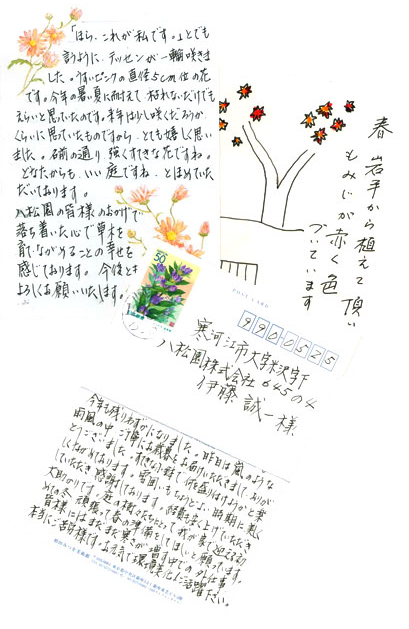 「ほら、これが私です。」とでも
言うように、テッセンが一輪咲きま
した。うすいピンクの直径5cm位の花
です。今年の暑い夏に耐えて、枯れないだけでも
えらいと思っていたのです。来年は少し咲くだろうか
くらいに思っていたものですから、とても嬉しく思い
ました。名前の通り、強くすてきな花ですね。
どなたからも、いい庭ですね、とほめていた
だいております。
八松園の皆様のおかげで
落ち着いた心で草木を
育て、ながめることの幸せを
感じております。今後とも
よろしくお願いいたします。
春 岩手から植えて頂い
もみじが赤く色
づいています
POST CARD
50
990-0525
寒河江市大字米沢字下
八松園株式会社 645の4
伊藤 誠一様
今年も残りわずかになりました。昨日は嵐のような
雨風の中
とうございました。すてきな
しくながめております。雪囲いもちょうどよい時期に
していただき感謝しております。
大助かりです。庭の
めの冬 頑張って春の準備をしてほしいと願っています。
皆様にはまだまだ寒さが増す中での外仕事
本当にご苦労様です。お元気で環境美化に活躍下さい。